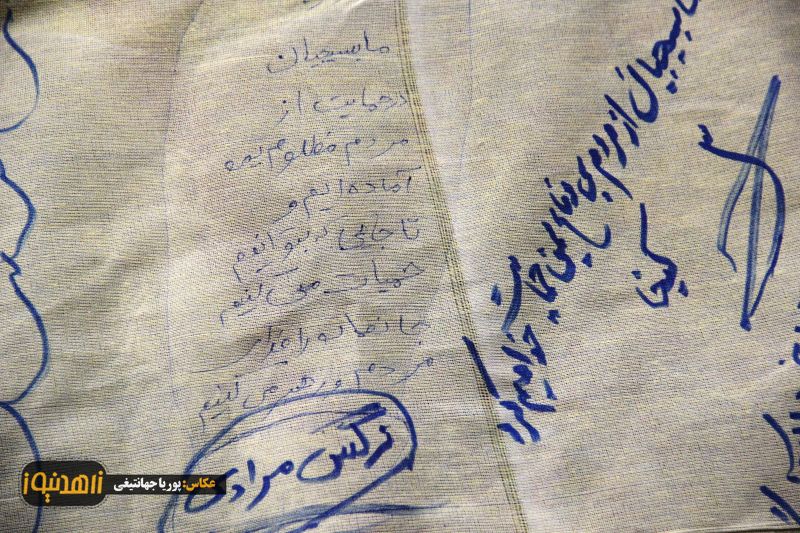 ما بسیجیان
در حمایت از
مردم مظلوم یمن
آماده ایم و
تا جایی که بتوانیم
حمیات می کنیم
جانمانو را فدای
مردم و رهبر می کنیم
نرگس مرادی
ما بسیجیان از مردم بی دفاع یمن حمایت خواهیم کرد
زاهدنیوز
عکاس: پوریا جهانتیغی